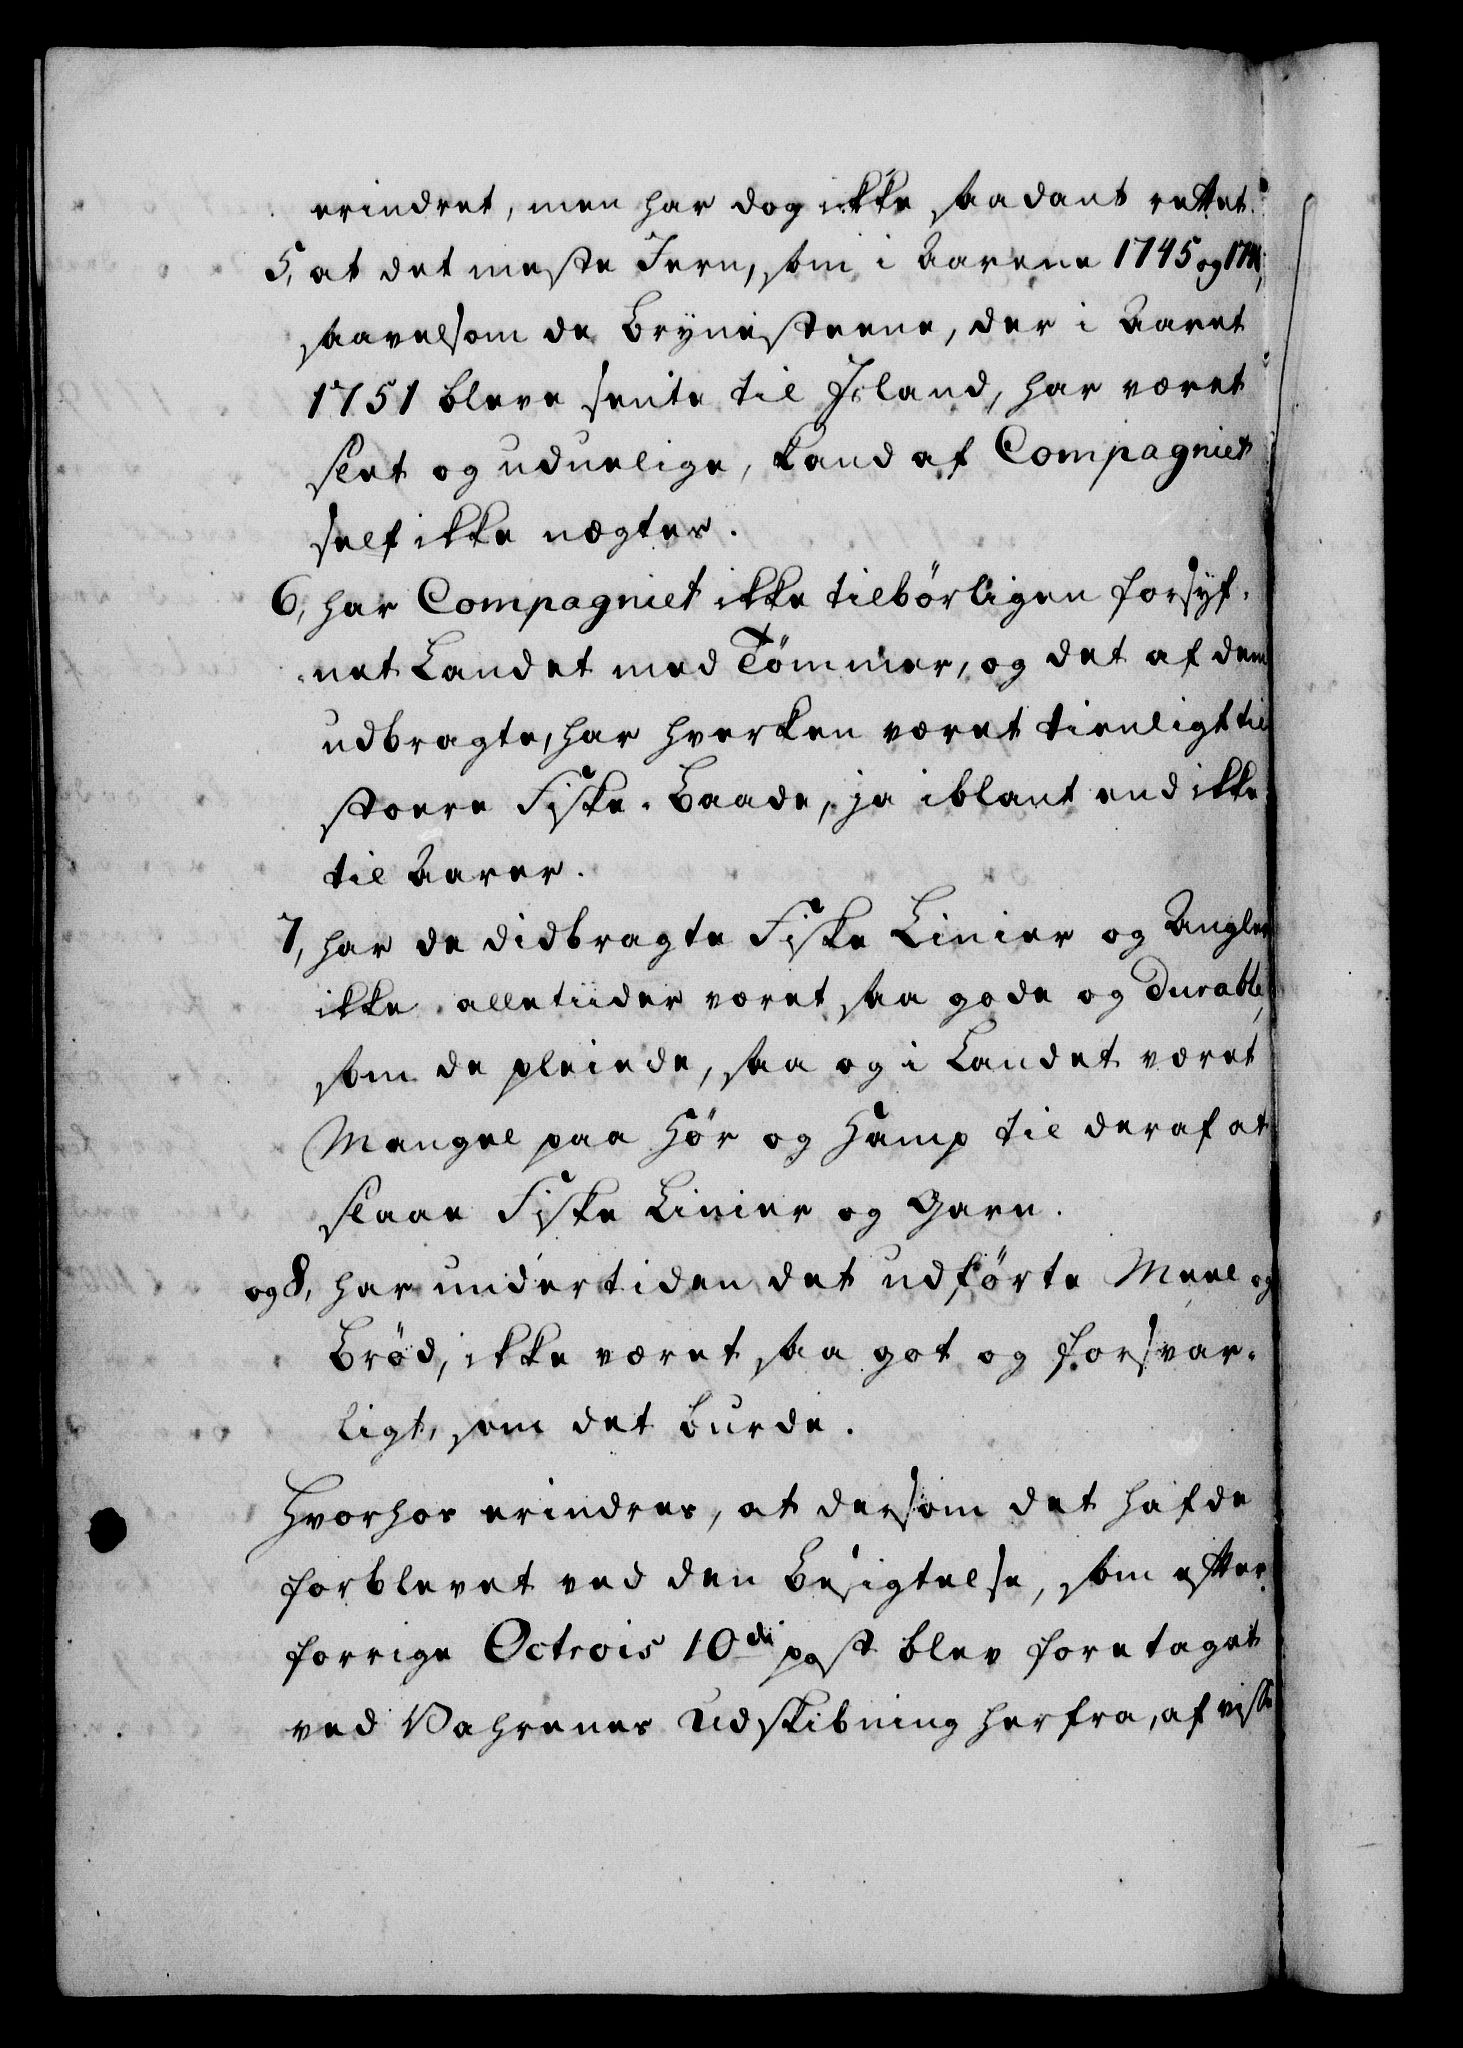 erindret, men har dog ikke saadant rettet.
5, at det meste Jern, som i Aarene 1745 og
saavelsom de Brynesteene, der i Aaret
1751 bleve sente til Island, har været
slet og uduelige, kand af Compagniet
self ikke nægtes.
6, har Compagniet ikke tilbørligen forsyf-
net Landet med Tömmer, og det af dem
udbragte, har hverken været tienligt til
stoere Fiske-Baade, ja iblant end ikke
til Aarer.
7, har de didbragte Fiske Linier og Angler
ikke alletiider været saa gode og durable,
som de pleiede, saa og i Landet været
Mangel paa Hør og Hamp til deraf at
slaae Fiske Linier og Garn.
og 8, har undertiden det udførte Meel og
Brød, ikke været saa got og forsvar-
ligt, som det burde.
Hvorhos erindres, at dersom det hafde
forblevet ved den Besigtelse, som efter
forrige Octrois 10de post blev foretaget
ved Vahrenes Udskibning herfra, af visse